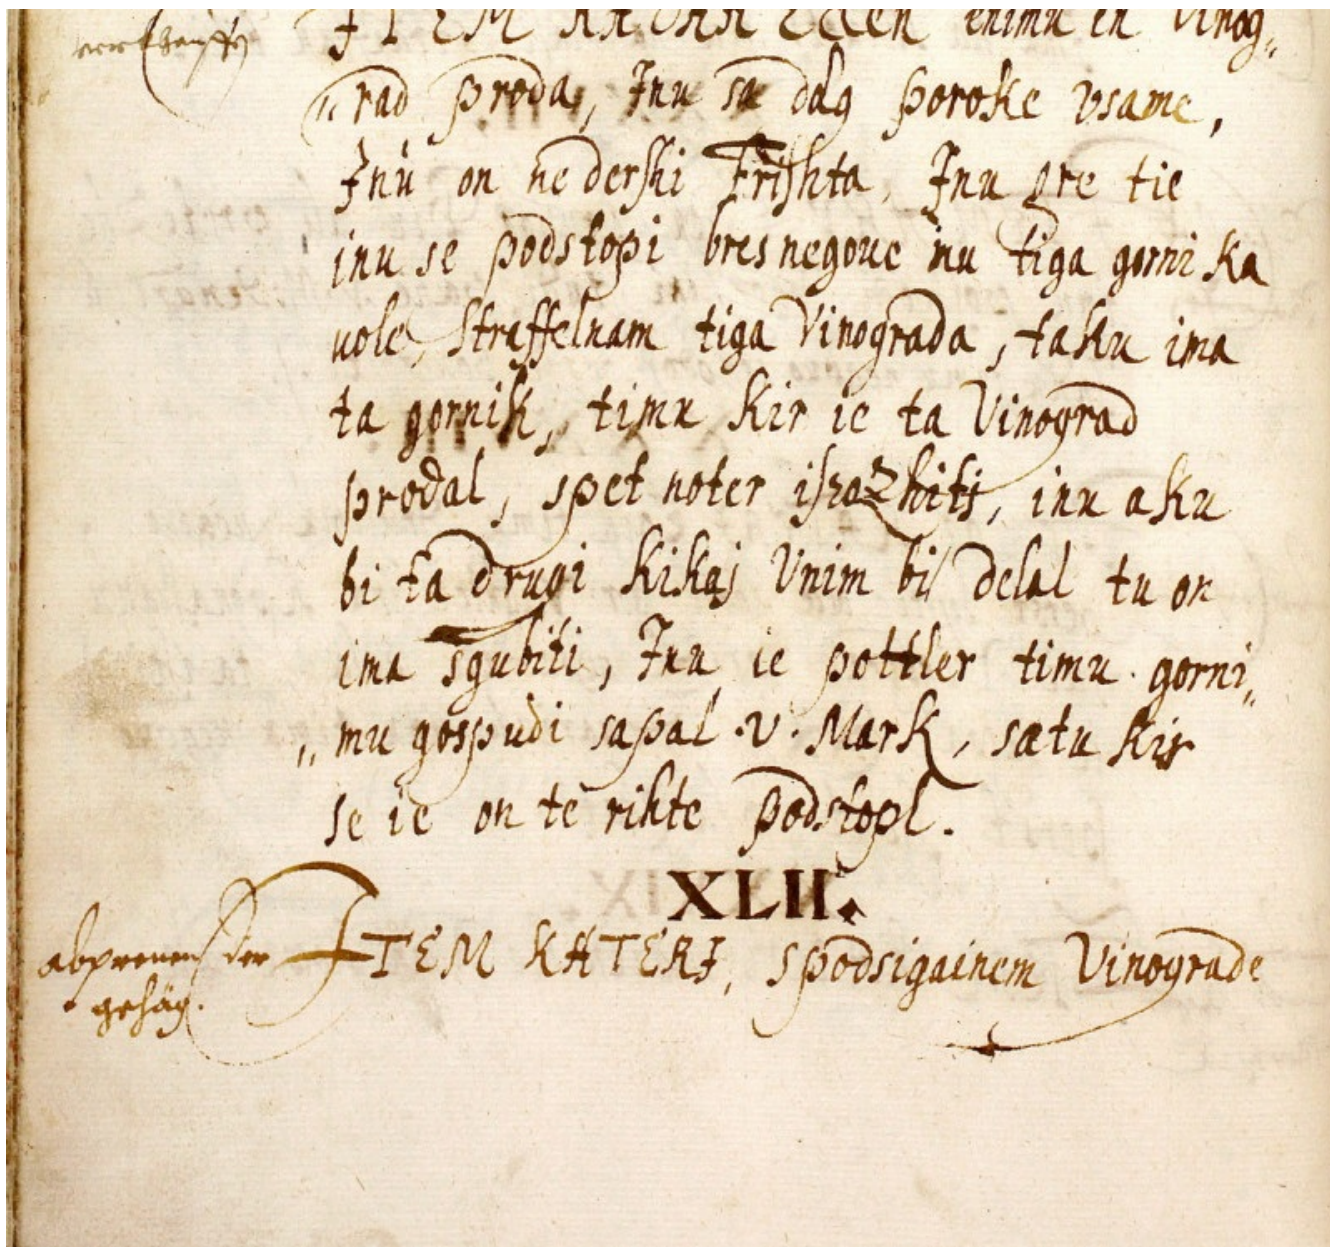 ITEM KADAR EDEN enimu en Vinog„
„rad proda, Inu sa dag poroke vsame,
Inu on ne dershi Frishta, Inu gre tie
inu se podstopi bres negoue inu tiga gorni ka
uole, Straffelnam tiga Vinograda, taku ima
ta gornik, timu kir ie ta Vinograd
prodal, spet noter
inu aku
bi ta drugi kikaj Vnim bil delal tu on
ima sgubiti, Inu ie pottler timu gorni„
„mu gospudi sapal .v. Mark, sætu kir
se ie on te rihte podstopl.
XLII.
der
gehäg.
ITEM KATERI, spodsigainem Vinograde